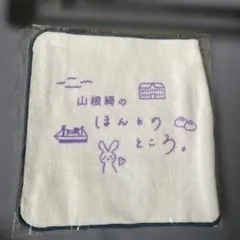 山根綺の
ほんとの
ところ。